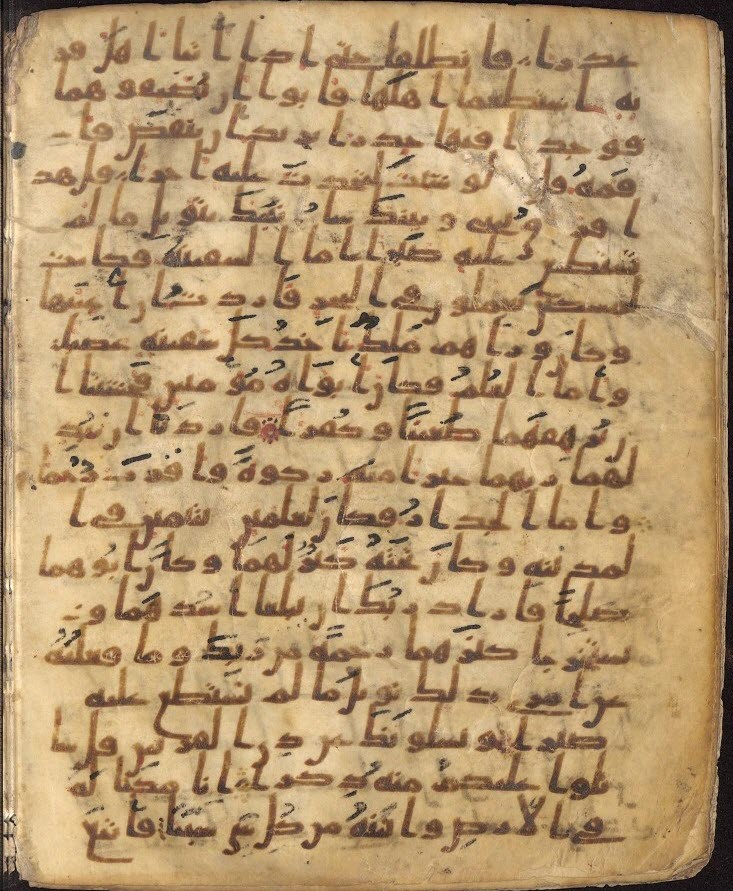 عذرا فانطلقا حتى اذا اتيا اهل قر
يه استطعما اهلها فابوا ان يضيفوهما
فوجدا فيها جدرا يريد ان ينقض فا
قمه قل لو شئت لتخذت عليه اجرا قل هذ
ا فرق بيني وبينك سانبئك بتويل ما لم
تستطع عليه صبرا اما السفينه فكانت
لمسكين يعملون في البحر فاردت ان اعيبها
وكان وراهم ملك ياخذ كل سفينه غصبا
واما الغلم فكان ابواه مومنين فخشينا ا
ن يرهقهما طغينا وكفرا فاردنا ان يبد
لهما ربهما خيرا منه زكوه واقرب رحما
واما الجدار فكان لغلمين يتيمين في ا
لمدينه وكان تحته كنز لهما وكان ابوهما
صلحا فاراد ربك ان يبلغا اشدهما و
يستخرجا كنزهما رحمه من ربك وما فعلته
عن امري ذلك تويل ما لم تسطع عليه
صبرا ويسلونك عن ذي القرنين قل سا
تلوا عليكم منه ذكرا انا مكنا له
في الارض واتينه من كل شي سببا فاتبع